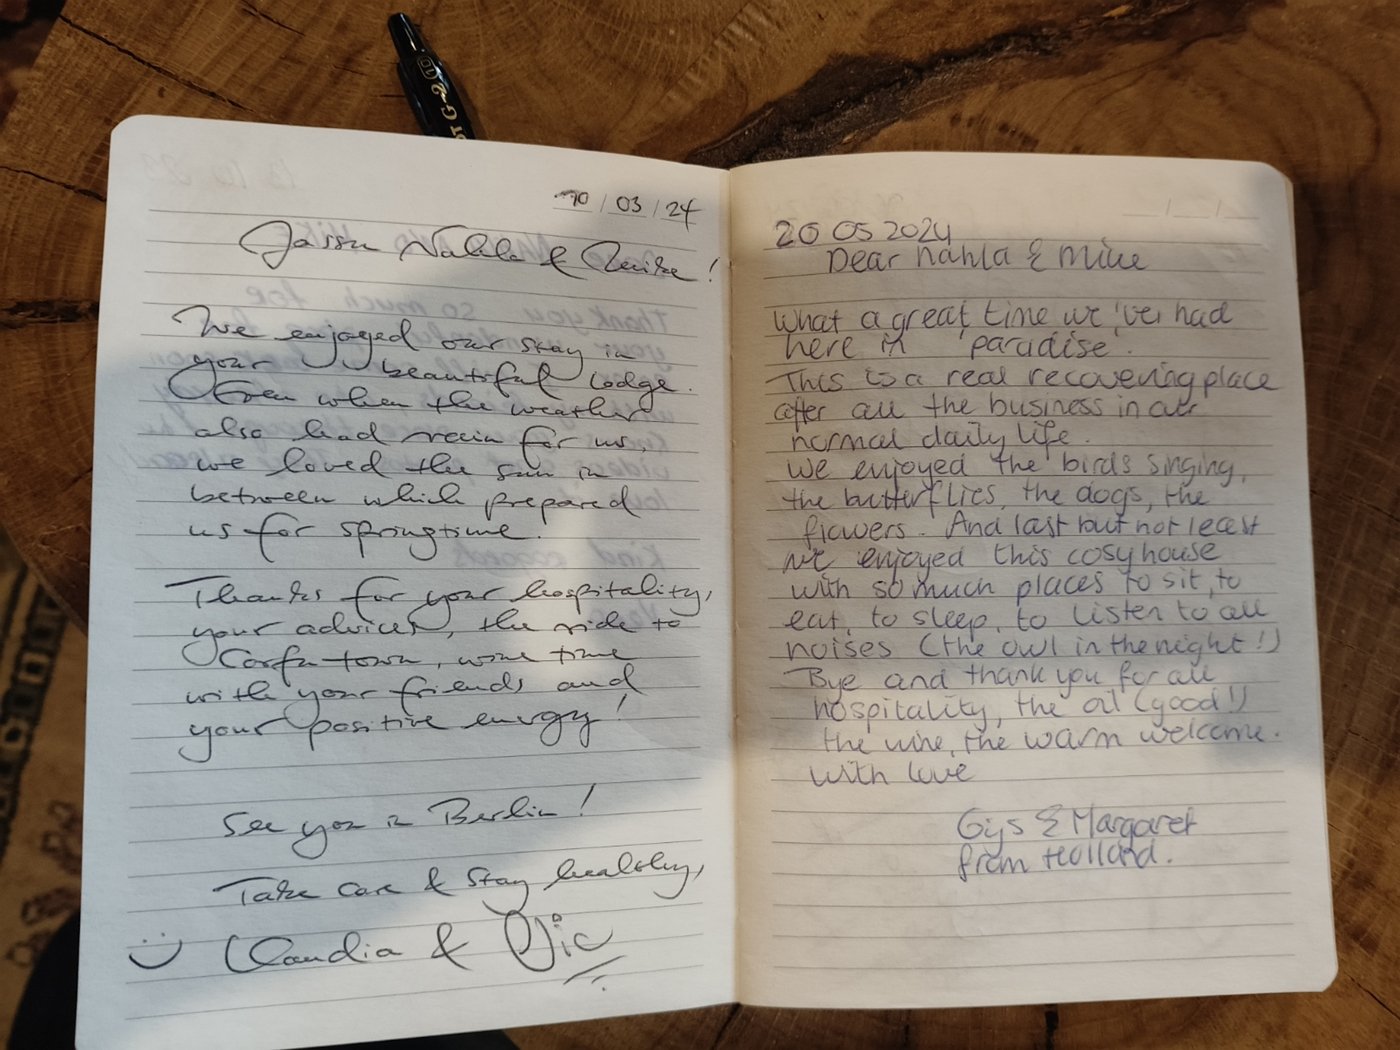 G-2 10
10/03/24
Jassu Nahla & Mike!
We enjoyed our stay in
your beautiful lodge.
Even when the weather
also had rain for us,
we loved the sun in
between which prepared
us for springtime.
Thanks for your hospitality,
your advices, the ride to
Corfu-town, wine time
with your friends and
your positive energy!
See you in Berlin!
Take care & stay healthy,
Claudia &
20 05 2024
Dear Nahla & Mike
What a great time we've had
here in 'paradise'.
This is a real recovering place
after all the business in our
normal daily life.
We enjoyed the birds singing,
the butterflies, the dogs, the
flowers. And last but not least
we enjoyed this cosy house
with so much places to sit, to
eat, to sleep, to listen to all
noises (the owl in the night!)
Bye and thank you for all
hospitality, the oil (good!)
the wine, the warm welcome.
with love
Gijs & Margaret
from Holland.